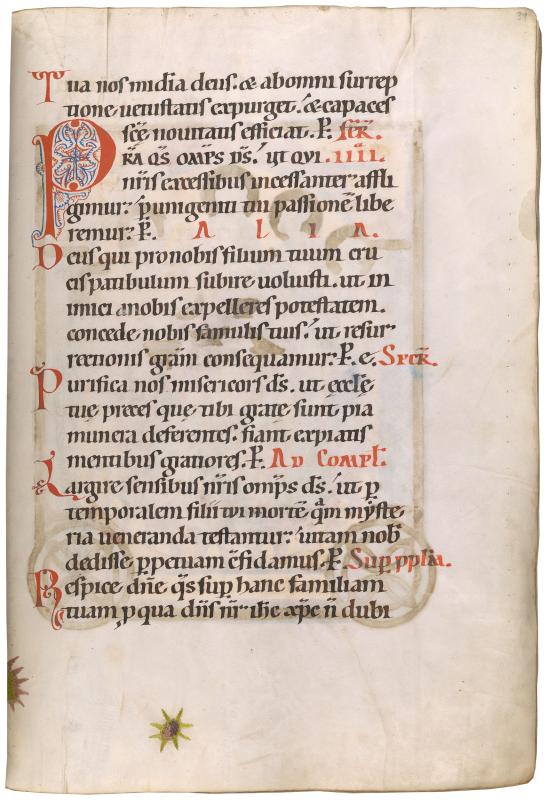 39
Tua nos m̅idia deus. & ab omni surrep
tione uetustatis expurget. & capaces
sc̅e nouitatis efficiat. P̶. FER̅.
PR̅A QS̅ OMP̅S DS̅. UT QVI .IIII.
nr̅is excessibus incessanter affli
gimur: p̲ unigeniti tui passione̅ libe
remur: P̶. A L I A.
Deus qui pro nobis filium tuum cru
cis patibulum subire uoluisti. ut in
imici a nobis expelleres potestatem.
concede nobis famulis tuis. ut resur
rectionis gra̅m consequamur: P̶. e. SECR̅.
Purifica nos misericors ds̅. ut eccl̅ę
tuę preces quę tibi gratę sunt pia
munera deferentes. fiant expiatis
mentibus gratiores. P̶. AD COMPL̅.
Largire sensibus nr̅is omp̅s ds̅. ut p̲
temporalem filii tui morte̅ qua̅m myste
ria ueneranda testantur: uitam nob̅
dedisse p̲petuam c̅fidamus. P̶. Sup̲ pplm̅.
Respice dn̅e qs̅ sup̲ hanc familiam
tuam, p̲ qua dn̅s nr̅ ih̅c xp̅c n̅ dubi